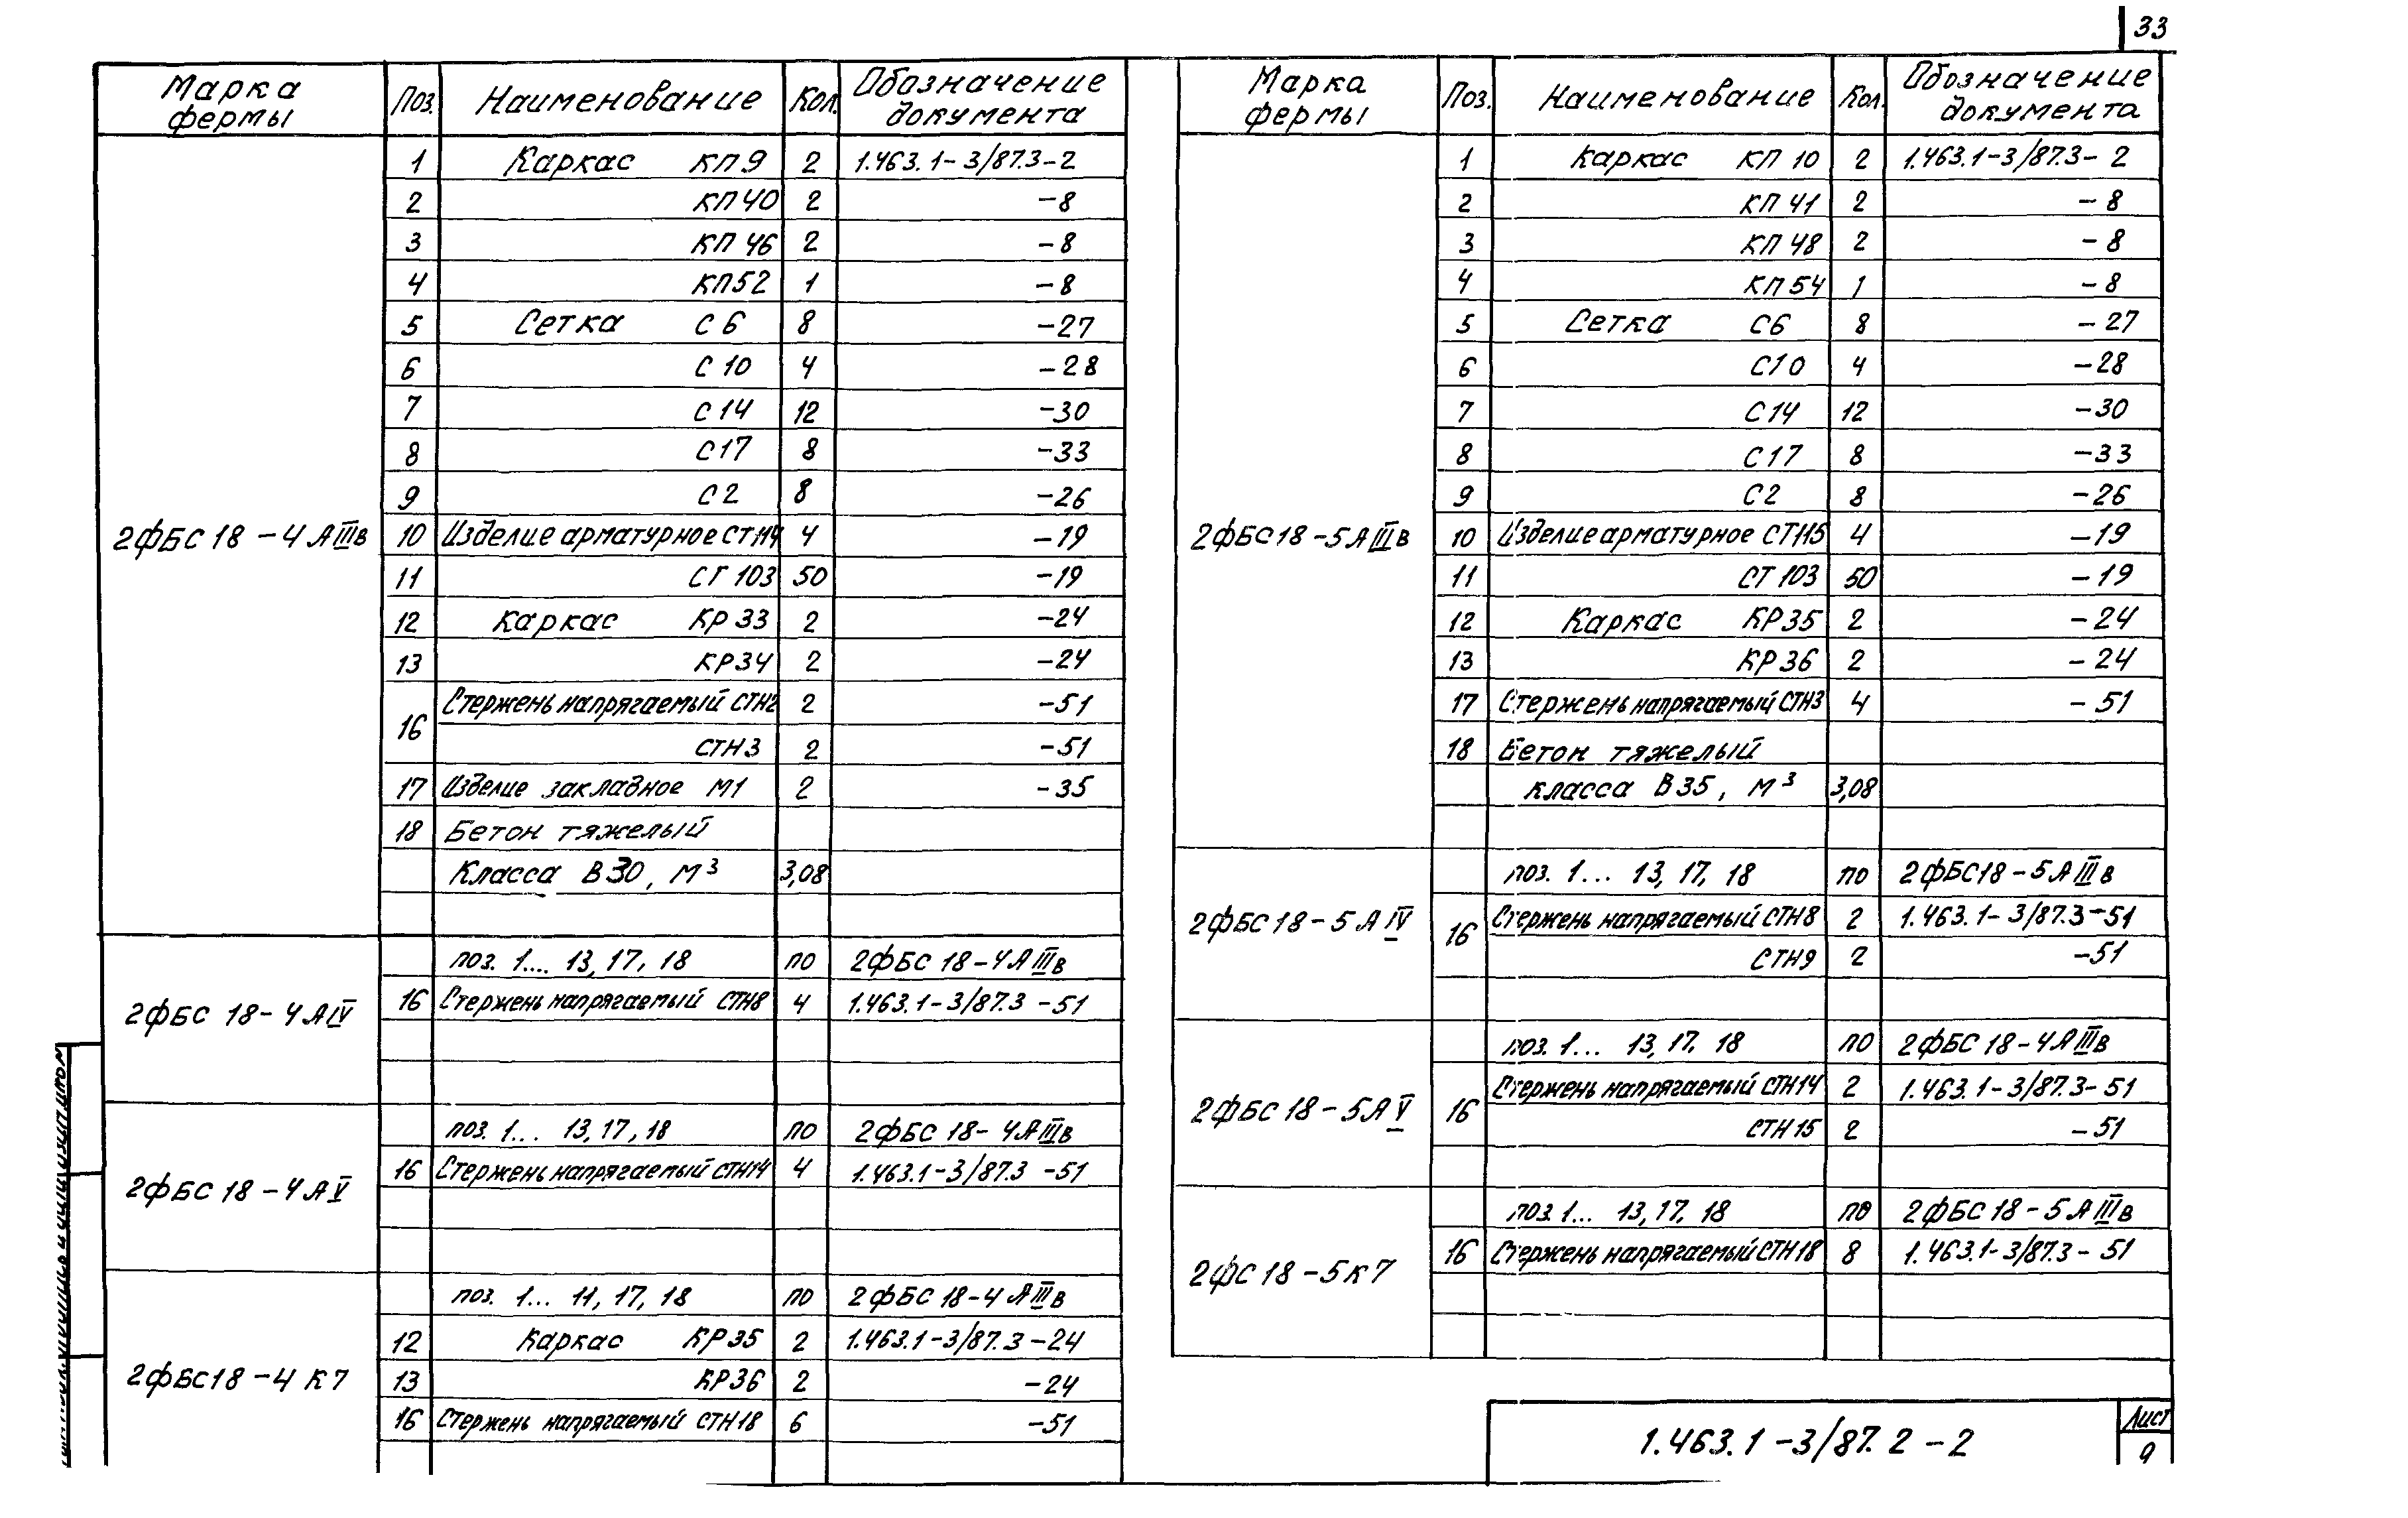 33
Марка фермы Поз. Наименование Кол. Обозначение документа
1 Каркас КП9 2 1.463.1-3/87.3-2
2 КП40 2 -8
3 КП46 2 -8
4 КП52 1 -8
5 Сетка С6 8 -27
6 С10 4 -28
7 С14 12 -30
8 С17 8 -33
9 С2 8 -26
2ФБС18-4АIIIв 10 Изделие арматурное СТ114 4 -19
11 СТ103 50 -19
12 Каркас КР33 2 -24
13 КР34 2 -24
16 Стержень напрягаемый СТН2 2 -51
СТН3 2 -51
17 Изделие закладное М1 2 -35
18 Бетон тяжелый
Класса В30, м³ 3,08
поз. 1.... 13, 17, 18 по 2ФБС18-4АIIIв
2ФБС 18-4АIV 16 Стержень напрягаемый СТН8 4 1.463.1-3/87.3-51
поз. 1... 13, 17, 18 по 2ФБС 18-4АIIIв
2ФБС 18-4АV 16 Стержень напрягаемый СТН14 4 1.463.1-3/87.3-51
поз. 1... 11, 17, 18 по 2ФБС 18-4АIIIв
12 Каркас КР35 2 1.463.1-3/87.3-24
2ФБС18-4К7 13 КР36 2 -24
16 Стержень напрягаемый СТН18 6 -51
Марка фермы Поз. Наименование Кол. Обозначение документа
1 Каркас КП10 2 1.463.1-3/87.3-2
2 КП41 2 -8
3 КП48 2 -8
4 КП54 1 -8
5 Сетка С6 8 -27
6 С10 4 -28
7 С14 12 -30
8 С17 8 -33
9 С2 8 -26
2ФБС18-5АIIIв 10 Изделие арматурное СТ115 4 -19
11 СТ103 50 -19
12 Каркас КР35 2 -24
13 КР36 2 -24
17 Стержень напрягаемый СТН3 4 -51
18 Бетон тяжелый
класса В35, м³ 3,08
поз. 1... 13, 17, 18 по 2ФБС18-5АIIIв
2ФБС18-5АIV 16 Стержень напрягаемый СТН8 2 1.463.1-3/87.3-51
СТН9 2 -51
поз. 1... 13, 17, 18 по 2ФБС 18-4АIIIв
2ФБС18-5АV 16 Стержень напрягаемый СТН14 2 1.463.1-3/87.3-51
СТН15 2 -51
поз. 1... 13, 17, 18 по 2ФБС 18-5АIIIв
2ФС18-5К7 16 Стержень напрягаемый СТН18 8 1.463.1-3/87.3-51
1.463.1-3/87.2-2
Лист
9